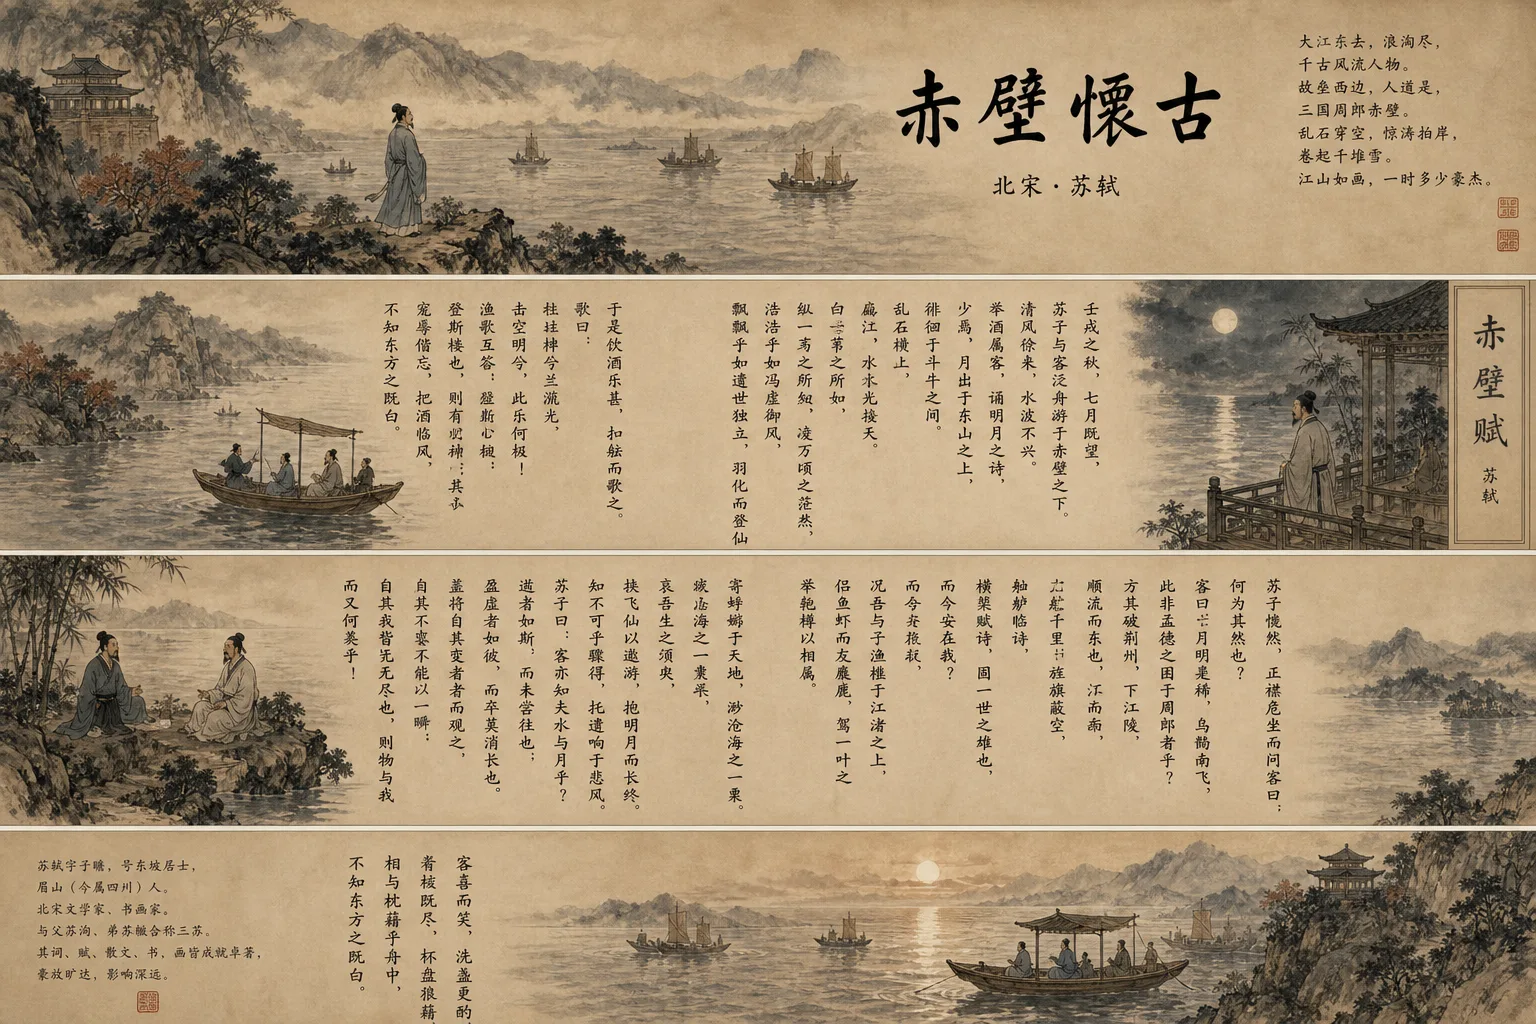 赤壁懷古
北宋·苏轼
大江东去，浪淘尽，
千古风流人物。
故垒西边，人道是，
三国周郎赤壁。
乱石穿空，惊涛拍岸，
卷起千堆雪。
江山如画，一时多少豪杰。
赤壁赋
苏轼
壬戌之秋，七月既望，
苏子与客泛舟游于赤壁之下。
清风徐来，水波不兴。
举酒属客，诵明月之诗，
少焉，月出于东山之上，
徘徊于斗牛之间。
乱石横上，
江，水水光接天。
白之所如，
纵一之所如，凌万顷之茫然，
浩浩乎如冯虚御风，
飘飘乎如遗世独立，羽化而登仙
于是饮酒乐甚，扣舷而歌之。
歌曰：
桂棹兮兰
击空明兮，此乐何极！
渔歌互答：心
登斯楼也，则有：其
宠辱偕忘，把酒临风，
不知东方之既白。
苏子愀然，正襟危坐而问客曰：
何为其然也？
客曰月明星稀，乌鹊南飞，
此非孟德之困于周郎者乎？
方其破荆州，下江陵，
顺流而东也，
千里旌旗蔽空，
舳舻临诗，
横槊赋诗，固一世之雄也，
而今安在哉？
而今
况吾与子渔樵于江渚之上，
侣鱼虾而友麋鹿，驾一叶之
举匏樽以相属。
寄蜉蝣于天地，渺沧海之一粟。
海之一
哀吾生之须臾，
挟飞仙以遨游，抱明月而长终。
知不可乎骤得，托遗响于悲风。
苏子曰：客亦知夫水与月乎？
逝者如斯，而未尝往也；
盈虚者如彼，而卒莫消长也。
盖将自其变者者而观之，
自其不变不能以一瞬；
自其我皆无无尽也，则物与我
而又何羡乎！
客喜而笑，洗盏更酌
肴核既尽，杯盘狼藉
相与枕藉乎舟中，
不知东方之既白。
苏轼字子瞻，号东坡居士，
眉山（今属四川）人。
北宋文学家、书画家。
与父苏洵、弟苏辙合称三苏。
其词、赋、散文、书，画皆成就卓著，
豪放旷达，影响深远。